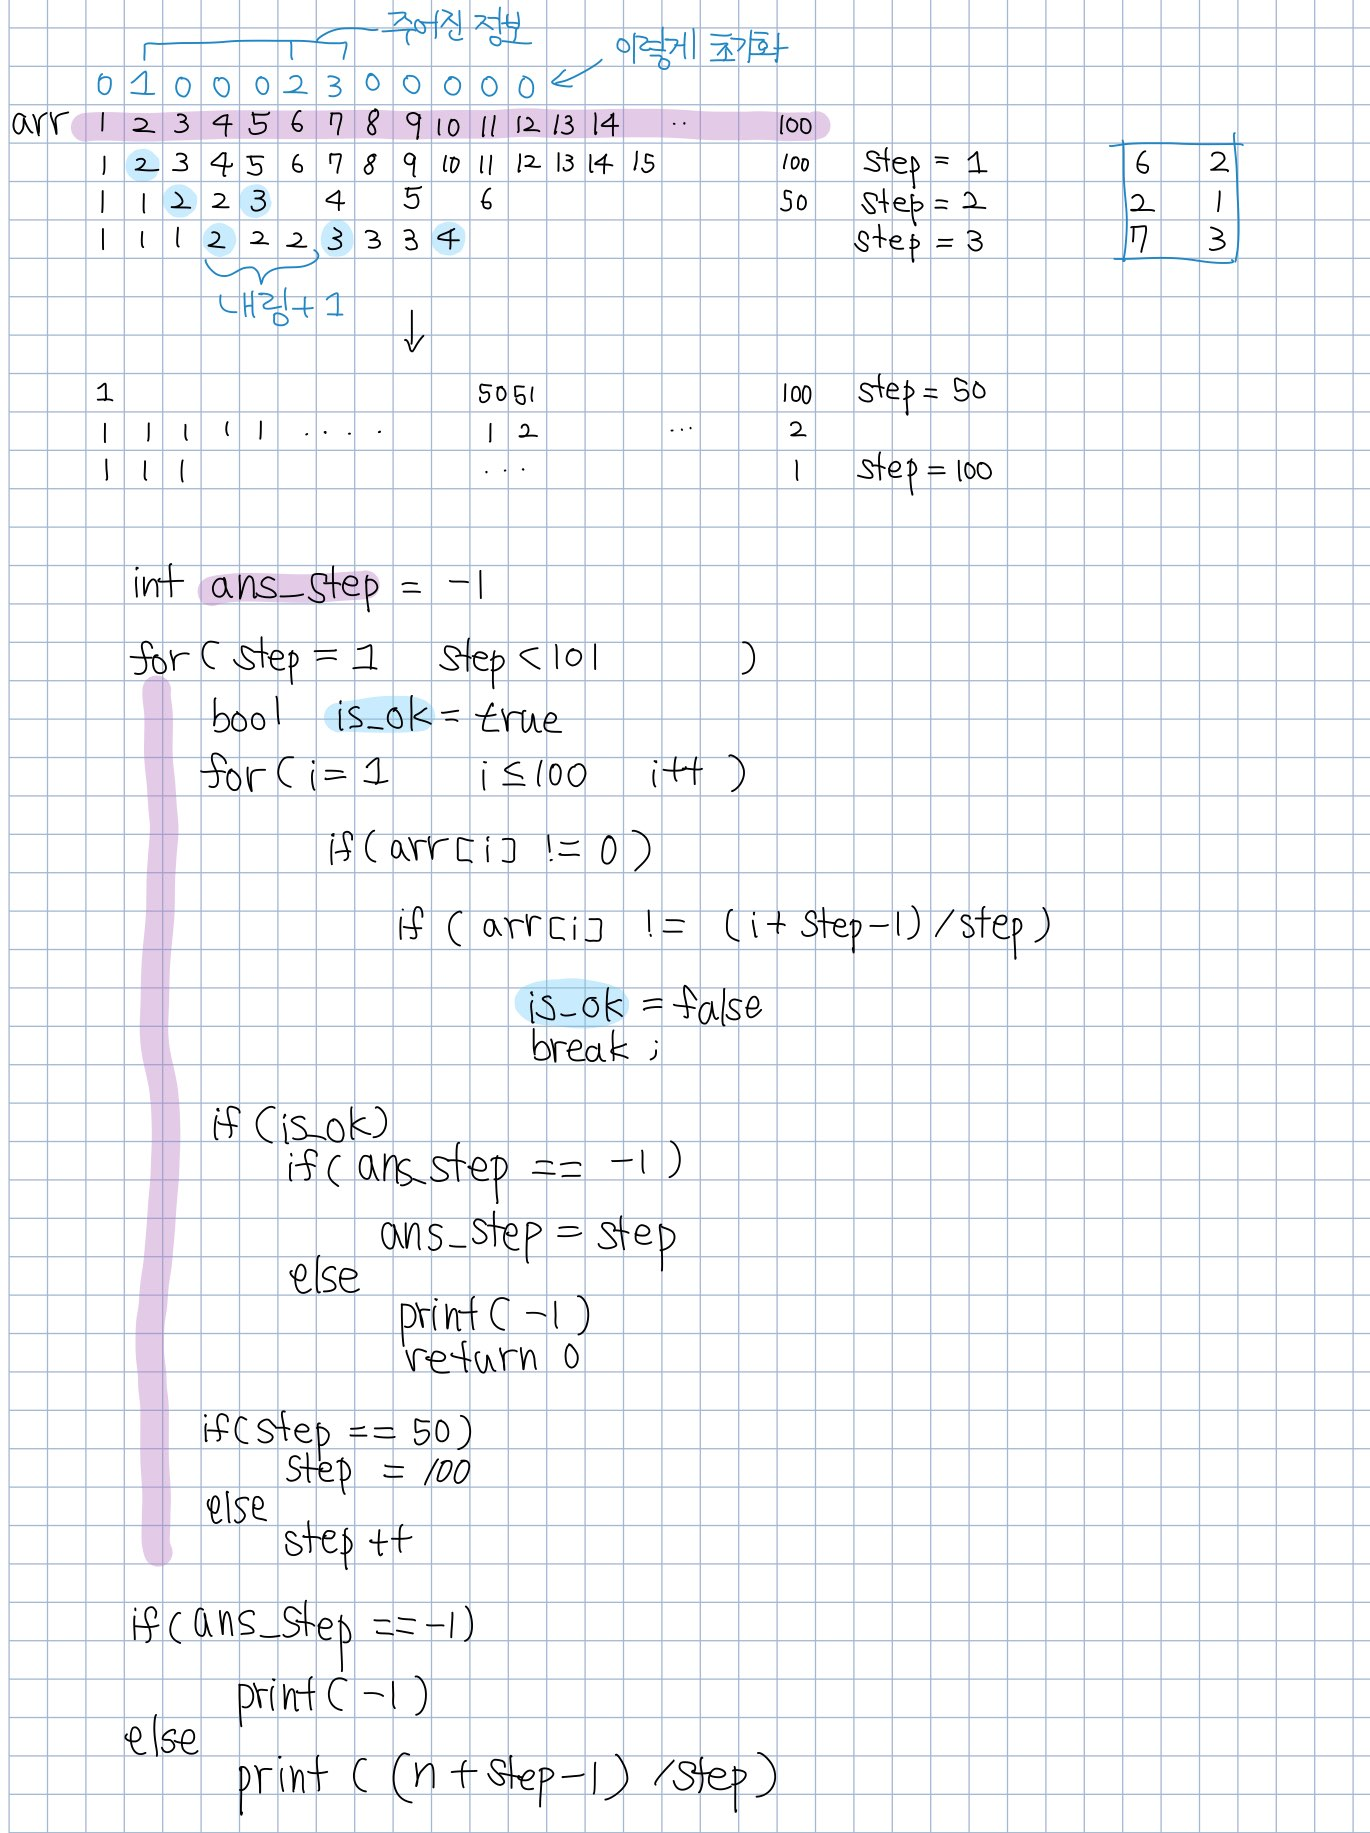 주어진 정보
이렇게 초기화
0 1 0 0 0 2 3 0 0 0 0 0
arr 1 2 3 4 5 6 7 8 9 10 11 12 13 14 ·· 100
1 2 3 4 5 6 7 8 9 10 11 12 13 14 15 100 step = 1 6 2
1 1 2 2 3 4 5 6 50 step = 2 2 1
1 1 1 2 2 2 3 3 3 4 step = 3 7 3
내림+1
1 50 51 100 step = 50
1 1 1 1 1 .... 1 2 ... 2
1 1 1 ... 1 step = 100
int ans_step = -1
for ( step = 1 step < 101 )
bool is_ok = true
for ( i = 1 i ≤ 100 i++ )
if ( arr[i] != 0 )
if ( arr[i] != (i + step-1) / step )
is_ok = false
break ;
if (is_ok)
if ( ans_step == -1 )
ans_step = step
else
print( -1 )
return 0
if( step == 50 )
step = 100
else
step ++
if ( ans_step == -1 )
print( -1 )
else
print ( (n + step-1) / step )